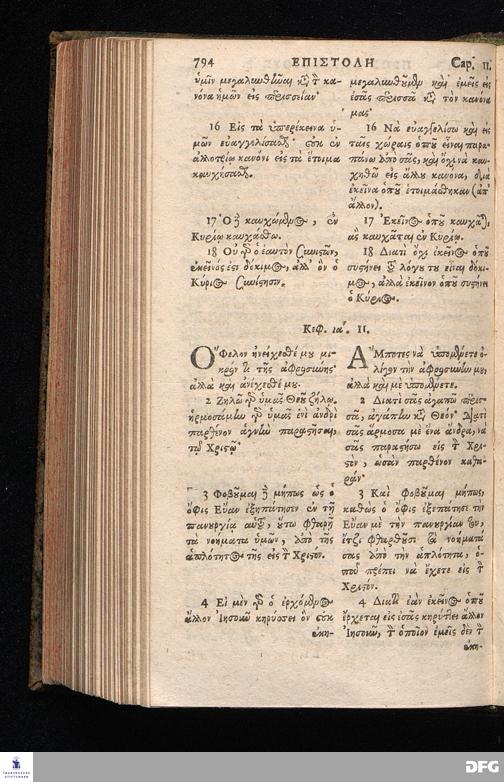 794 ΕΠΙΣΤΟΛΗ Cap. 11.
ὑμῖν μεγαλυνθῆναι κτ᾽ τ κα-
νόνα ἡμῶν εἰς περισσείαν·
16 Εἰς τὰ ὑπερέκεινα ὑ-
μῶν εὐαγγελίσασθαι· οὐκ ἐν
ἀλλοτρίῳ κανόνι εἰς τὰ ἕτοιμα
καυχήσασθαι.
17 Ὁ δὲ καυχώμενος, ἐν
Κυρίῳ καυχάσθω.
18 Οὐ γὰρ ὁ ἑαυτὸν συνιστῶν,
ἐκεῖνός ἐστι δόκιμος, ἀλλ᾽ ὃν ὁ
Κύριος συνίστησιν.
μεγαλυνθοῦμεν καὶ ἐμεῖς εἰς
ἐσᾶς περισσὰ κτ᾽ τὸν κανόνα
μας·
16 Νὰ εὐαγγελίσω καὶ εἰς
ταῖς χώραις ὁποῦ εἶναι παρα-
πάνω ἀπὸ σᾶς, καὶ ὄχι νὰ καυ-
χηθῶ εἰς ἄλλου κανόνα, διὰ
ἐκεῖνα ὁποῦ ἑτοιμάσθηκαν (ἀπ᾽
ἄλλον).
17 Ἐκεῖνος ὁποῦ καυχᾶται,
ἂς καυχᾶται ἐν Κυρίῳ.
18 Διατὶ ὄχι ἐκεῖνος ὁποῦ
συστήνει τοῦ λόγου του εἶναι δόκι-
μος, ἀλλὰ ἐκεῖνον ὁποῦ συστήνει
ὁ Κύριος.
Κεφ. ια΄. 11.
Ὄφελον ἠνείχεσθέ μου μι-
κρόν τι τῆς ἀφροσύνης·
ἀλλὰ καὶ ἀνέχεσθέ μου.
2 Ζηλῶ γὰρ ὑμᾶς Θεοῦ ζήλῳ.
ἡρμοσάμην γὰρ ὑμᾶς ἑνὶ ἀνδρὶ
παρθένον ἁγνὴν παραστῆσαι,
τῷ Χριστῷ·
3 Φοβοῦμαι δὲ μήπως ὡς ὁ
ὄφις Εὔαν ἐξηπάτησεν ἐν τῇ
πανουργίᾳ αὑτοῦ, οὕτω φθαρῇ
τὰ νοήματα ὑμῶν, ἀπὸ τῆς
ἁπλότητος τῆς εἰς τ Χριστόν.
4 Εἰ μὲν γὰρ ὁ ἐρχόμενος
ἄλλον Ἰησοῦν κηρύσσει ὃν οὐκ
ἐκη-
Ἄμποτες νὰ ὑπομένετε ὀ-
λίγον τὴν ἀφροσύνην μου,
ἀλλὰ καὶ μὲ ὑπομένετε.
2 Διατὶ σᾶς ἀγαπῶ περισ-
σὰ, ἀγάπην κτ᾽ Θεόν· Διατὶ
σᾶς ἅρμοσα μὲ ἕνα ἄνδρα, νὰ
σᾶς παραστήσω εἰς τ Χρι-
στὸν, ὡσὰν παρθένον καθα-
ράν·
3 Καὶ φοβοῦμαι μήπως,
καθὼς ὁ ὄφις ἐξεπάτησε τὴν
Εὔαν μὲ τὴν πανουργίαν του,
ἔτζι φθαρθοῦσι τὰ νοήματά
σας ἀπὸ τὴν ἁπλότητα, ὁ-
ποῦ πρέπει νὰ ἔχετε εἰς τ
Χριστόν.
4 Διατὶ ἐὰν ἐκεῖνος ὁποῦ
ἔρχεται εἰς ἐσᾶς κηρύττει ἄλλον
Ἰησοῦν, τ ὁποῖον ἐμεῖς δὲν τ
ἐκη-
FRANCKESCHE
STIFTUNGEN
DFG